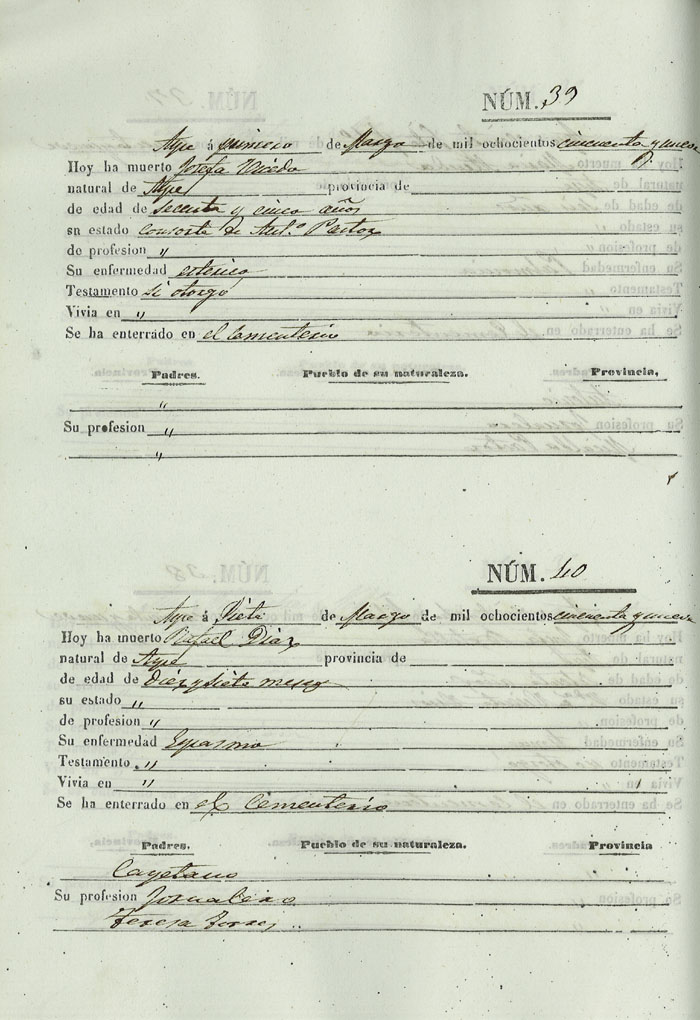 NÚM. 39
Aspe á primero de Marzo de mil ochocientos cincuenta y nueve
Hoy ha muerto Josefa
natural de Aspe provincia de
de edad de secenta y cinco años
su estado consorte de Ant.º Pastor
de profesion "
Su enfermedad
Testamento si otorgó
Vivia en "
Se ha enterrado en el Cementerio
Padres. Pueblo de su naturaleza. Provincia.
"
Su profesion "
"
NÚM. 40
Aspe á Siete de Marzo de mil ochocientos cincuenta y nueve
Hoy ha muerto Rafael Diaz
natural de Aspe provincia de
de edad de diez y siete meses
su estado "
de profesion "
Su enfermedad Espasmo
Testamento "
Vivia en "
Se ha enterrado en el Cementerio
Padres. Pueblo de su naturaleza. Provincia
Cayetano
Su profesion Jornalero
Teresa Torres